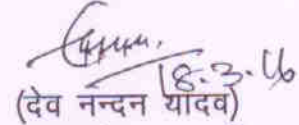 18.3.16
(देव नन्दन यादव)